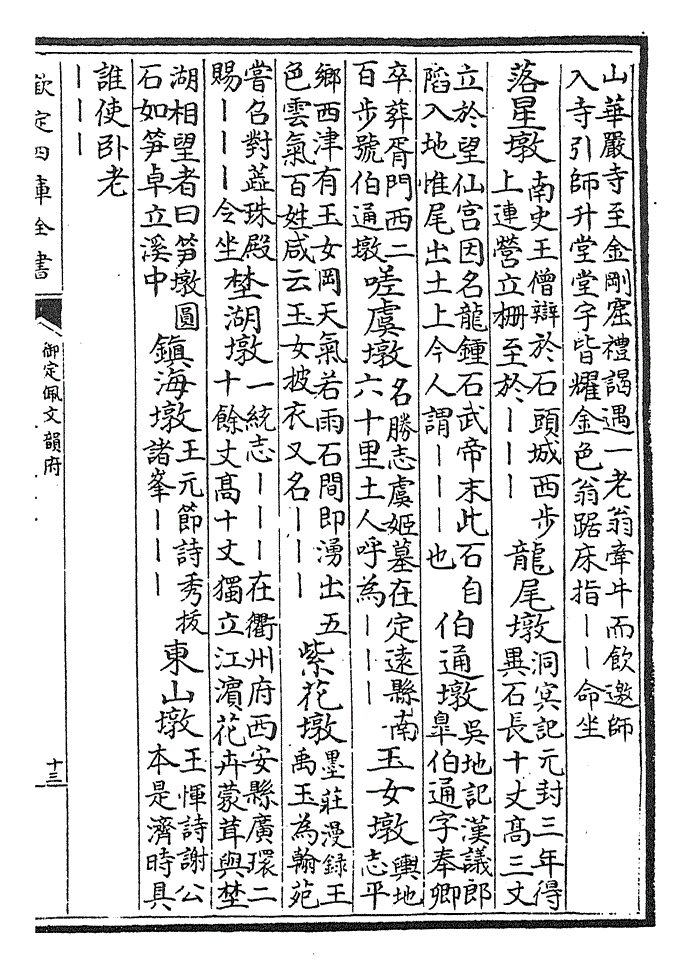 山華嚴寺至金剛窟禮謁遇一老翁牽牛而飲邀師
入寺引師升堂堂宇皆耀金色翁踞床指丨丨命坐
落星墩
南史王僧辯於石頭城西步
上連營立柵至於丨丨丨
龍尾墩
洞冥記元封三年得
異石長十丈髙三丈
立於望仙宫因名龍鍾石武帝末此石自
陷入地惟尾出土上今人謂丨丨丨也
伯通墩
吳地記漢議郎
臯伯通字奉卿
卒葬胥門西二
百步號伯通墩
嗟虞墩
名勝志虞姬墓在定遠縣南
六十里土人呼為丨丨丨
玉女墩
輿地
志平
鄉西津有玉女岡天氣若雨石間即湧出五
色雲氣百姓咸云玉女披衣又名丨丨丨
紫花墩
墨莊漫錄王
禹玉為翰苑
嘗召對蕋珠殿
賜丨丨丨令坐
埜湖墩
一統志丨丨丨在衢州府西安縣廣環二
十餘丈髙十丈獨立江濵花卉蒙茸與埜
湖相望者曰筍墩圓
石如筍卓立溪中
鎮海墩
王元節詩秀拔
諸峯丨丨丨
東山墩
王惲詩謝公
本是濟時具
誰使卧老
丨丨丨
欽定四庫全書
御定佩文韻府
十三